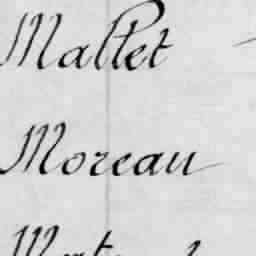 Mallet
Moreau